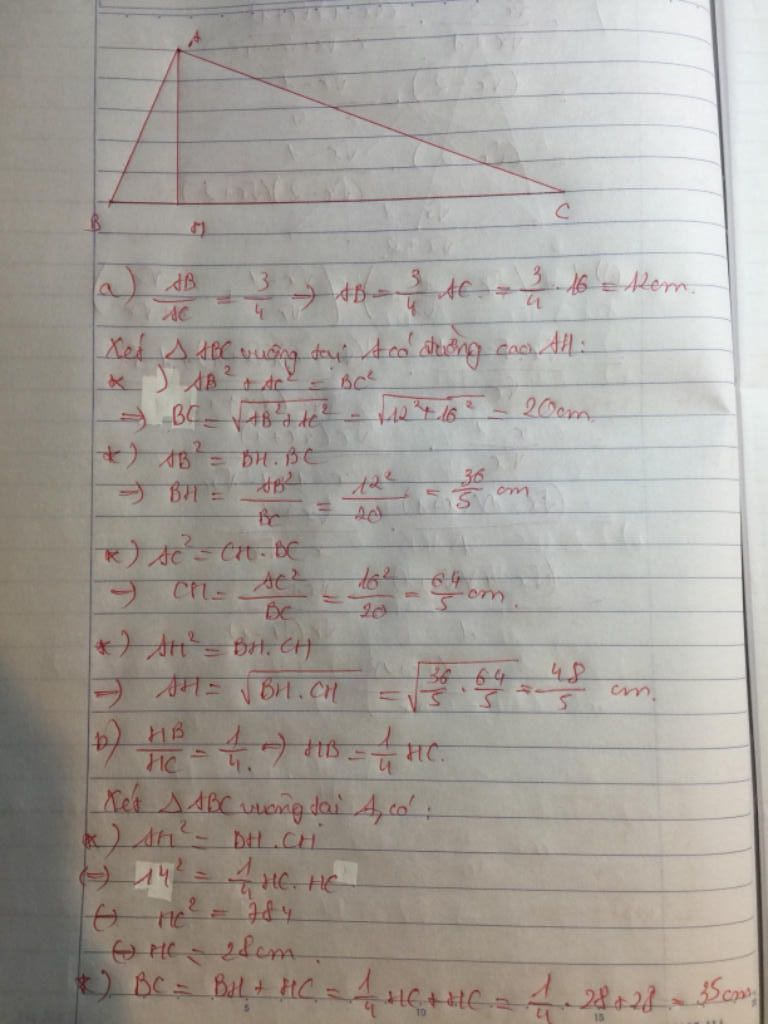 A
B
H
C
a) AB/AC = 3/4 => AB = 3/4 AC. = 3/4 . 16 = 12cm.
Xét △ ABC vuông tại A có đường cao AH:
*) AB² + AC² = BC²
=> BC = √(AB² + AC²) = √(12² + 16²) = 20cm.
*) AB² = BH. BC
=> BH = AB²/BC = 12²/20 = 36/5 cm.
*) AC² = CH. BC
=> CH = AC²/BC = 16²/20 = 64/5 cm.
*) AH² = BH. CH
=> AH = √(BH. CH) = √(36/5 . 64/5) = 48/5 cm.
b) HB/HC = 1/4. => HB = 1/4 HC.
Xét △ ABC vuông tại A, có:
*) AH² = BH. CH
<=> 14² = 1/4 HC. HC
<=> HC² = 784
<=> HC = 28cm.
*) BC = BH + HC = 1/4 HC + HC = 1/4 . 28 + 28 = 35cm
5 10 15